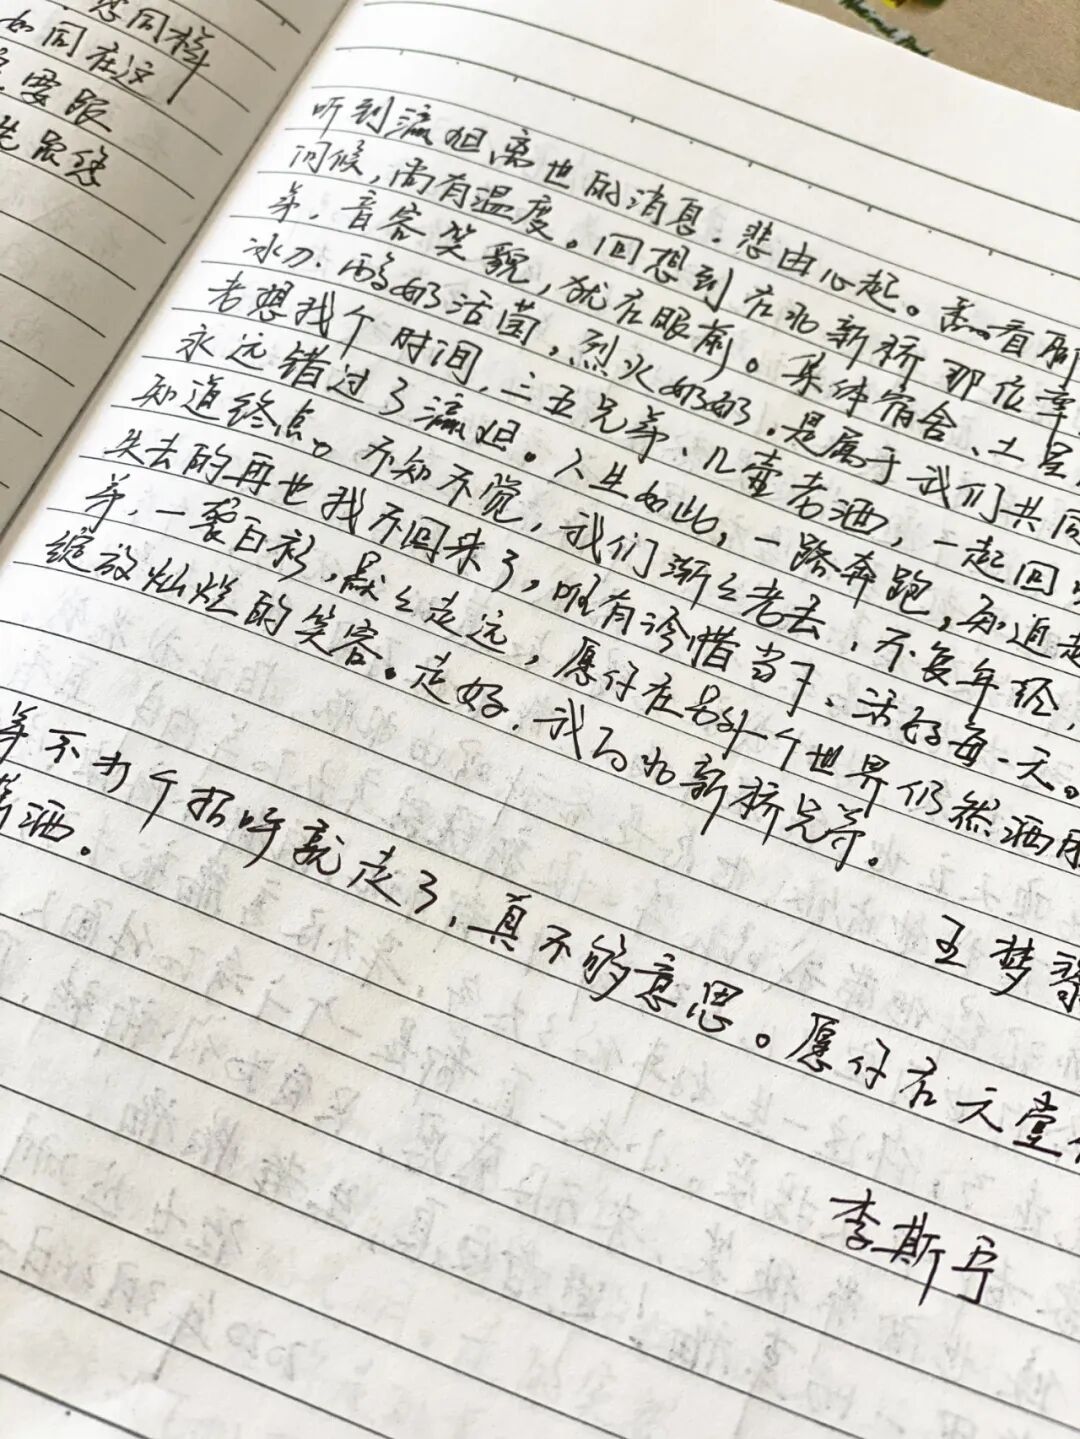 您同样
如同在这个
先跟您
听到瀛姐离世的消息，悲由心起。看
问候，尚有温度。回想到在北新桥那依
弟，音容笑貌，犹在眼前。集体宿舍、土星
冰刀、酸奶活菌，烈火奶奶，是属于我们共同
去想找个时间，三五兄弟、几壶老酒，一起回
永远错过了瀛姐。人生如此，一路奔跑，知道起
知道终点。不知不觉，我们渐渐老去，不复年轻，
失去的再也找不回来了，唯有珍惜当下，活好每一天。
弟，一袭白衫，默々走远，愿你在另外一个世界仍然洒
绽放灿烂的笑容。走好，我的北新桥兄弟。
王梦
不打个招呼就走了，真不够意思。愿你在天堂
酒。
李斯宁